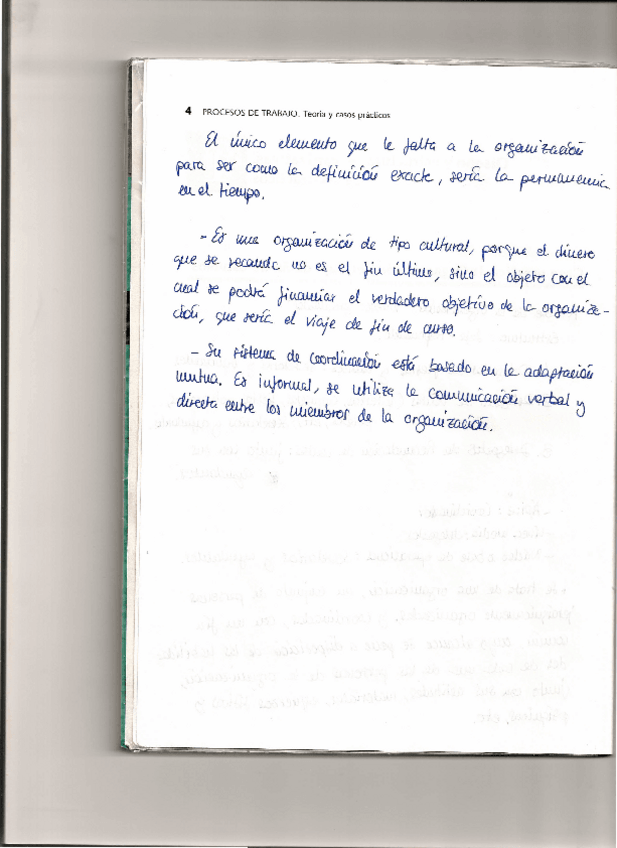 4 PROCESOS DE TRABAJO. Teoría y casos prácticos
El único elemento que le falta a la organización
para ser como la definición exacta, sería la permanencia
en el tiempo.
- Es una organización de tipo cultural, porque el dinero
que se recauda no es el fin último, sino el objeto con el
cual se podrá financiar el verdadero objetivo de la organiza-
ción, que sería el viaje de fin de curso.
- Su sistema de coordinación está basado en la adaptación
mutua. Es informal, se utiliza la comunicación verbal y
directa entre los miembros de la organización.